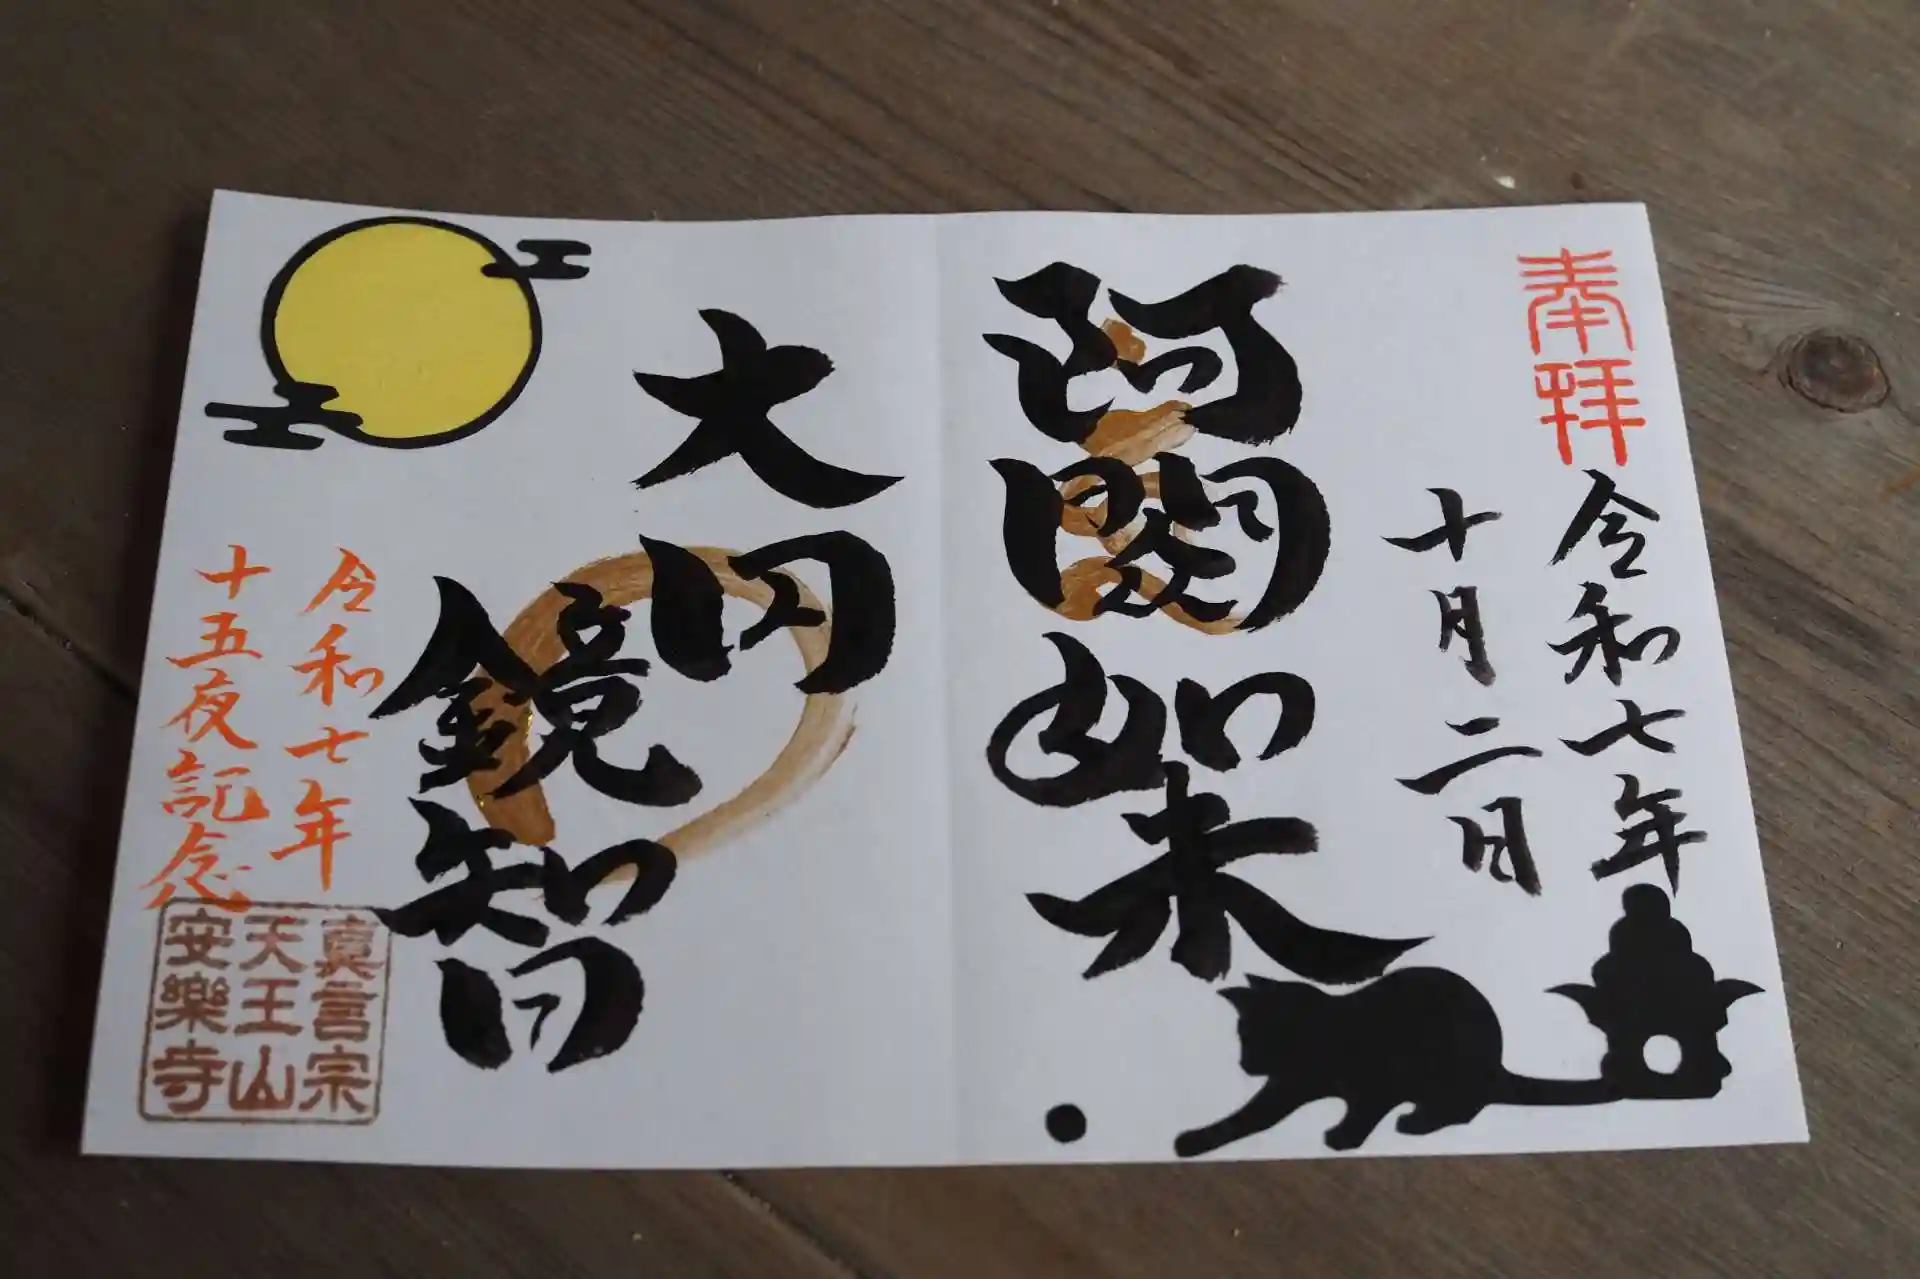 奉拝
令和七年
十月二日
阿閦如来
大円
鏡智
令和七年
十五夜記念
真言宗
天王山
安樂寺